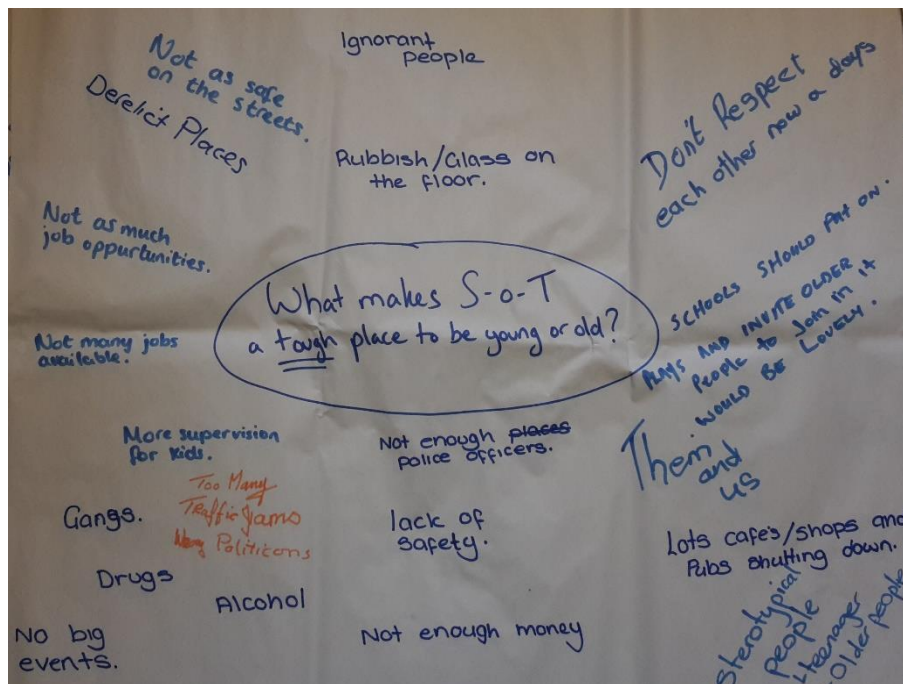 Ignorant
people
Not as safe
on the streets.
Derelict Places
Rubbish/Glass on
the floor.
Don't Respect
each other now a days
Not as much
job oppurtunities.
What makes S-o-T
a tough place to be young or old?
SCHOOLS SHOULD PUT ON.
PLAYS AND INVITE OLDER
PEOPLE to Join in it
WOULD BE LOVELY.
Not many jobs
available.
More supervision
for kids.
Not enough places
police officers.
Them
and
us
Too Many
Traffic Jams
Politicons
Gangs.
lack of
safety.
Lots cafe's/shops and
Pubs shutting down.
Drugs
Alcohol
No big
events.
Not enough money
sterotypical
people
teenager
Older people